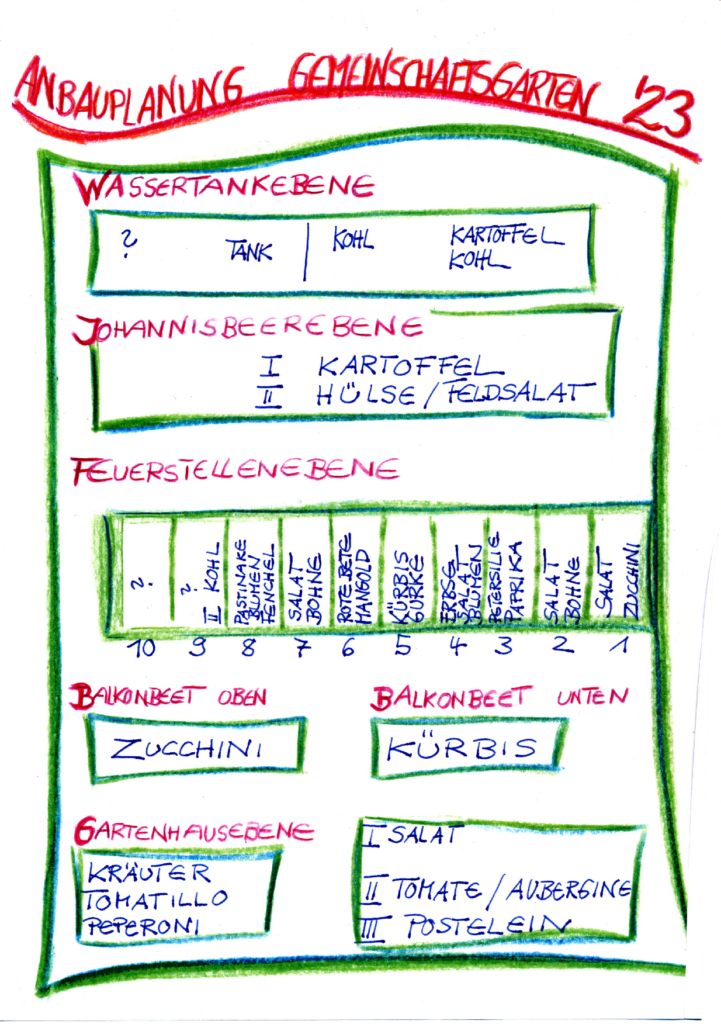 ANBAUPLANUNG GEMEINSCHAFTSGARTEN '23
WASSERTANKEBENE
? TANK | KOHL KARTOFFEL
KOHL
JOHANNISBEEREBENE
I KARTOFFEL
II HÜLSE / FELDSALAT
FEUERSTELLENEBENE
?
?
II KOHL
PASTINAKE
BLUMEN
FENCHEL
SALAT
BOHNE
ROTE BETE
MANGOLD
KÜRBIS
GURKE
ERBSE
SALAT
BLUMEN
PETERSILIE
PAPRIKA
SALAT
BOHNE
SALAT
ZUCCHINI
10 9 8 7 6 5 4 3 2 1
BALKONBEET OBEN
ZUCCHINI
BALKONBEET UNTEN
KÜRBIS
GARTENHAUSEBENE
KRÄUTER
TOMATILLO
PEPERONI
I SALAT
II TOMATE / AUBERGINE
III POSTELEIN